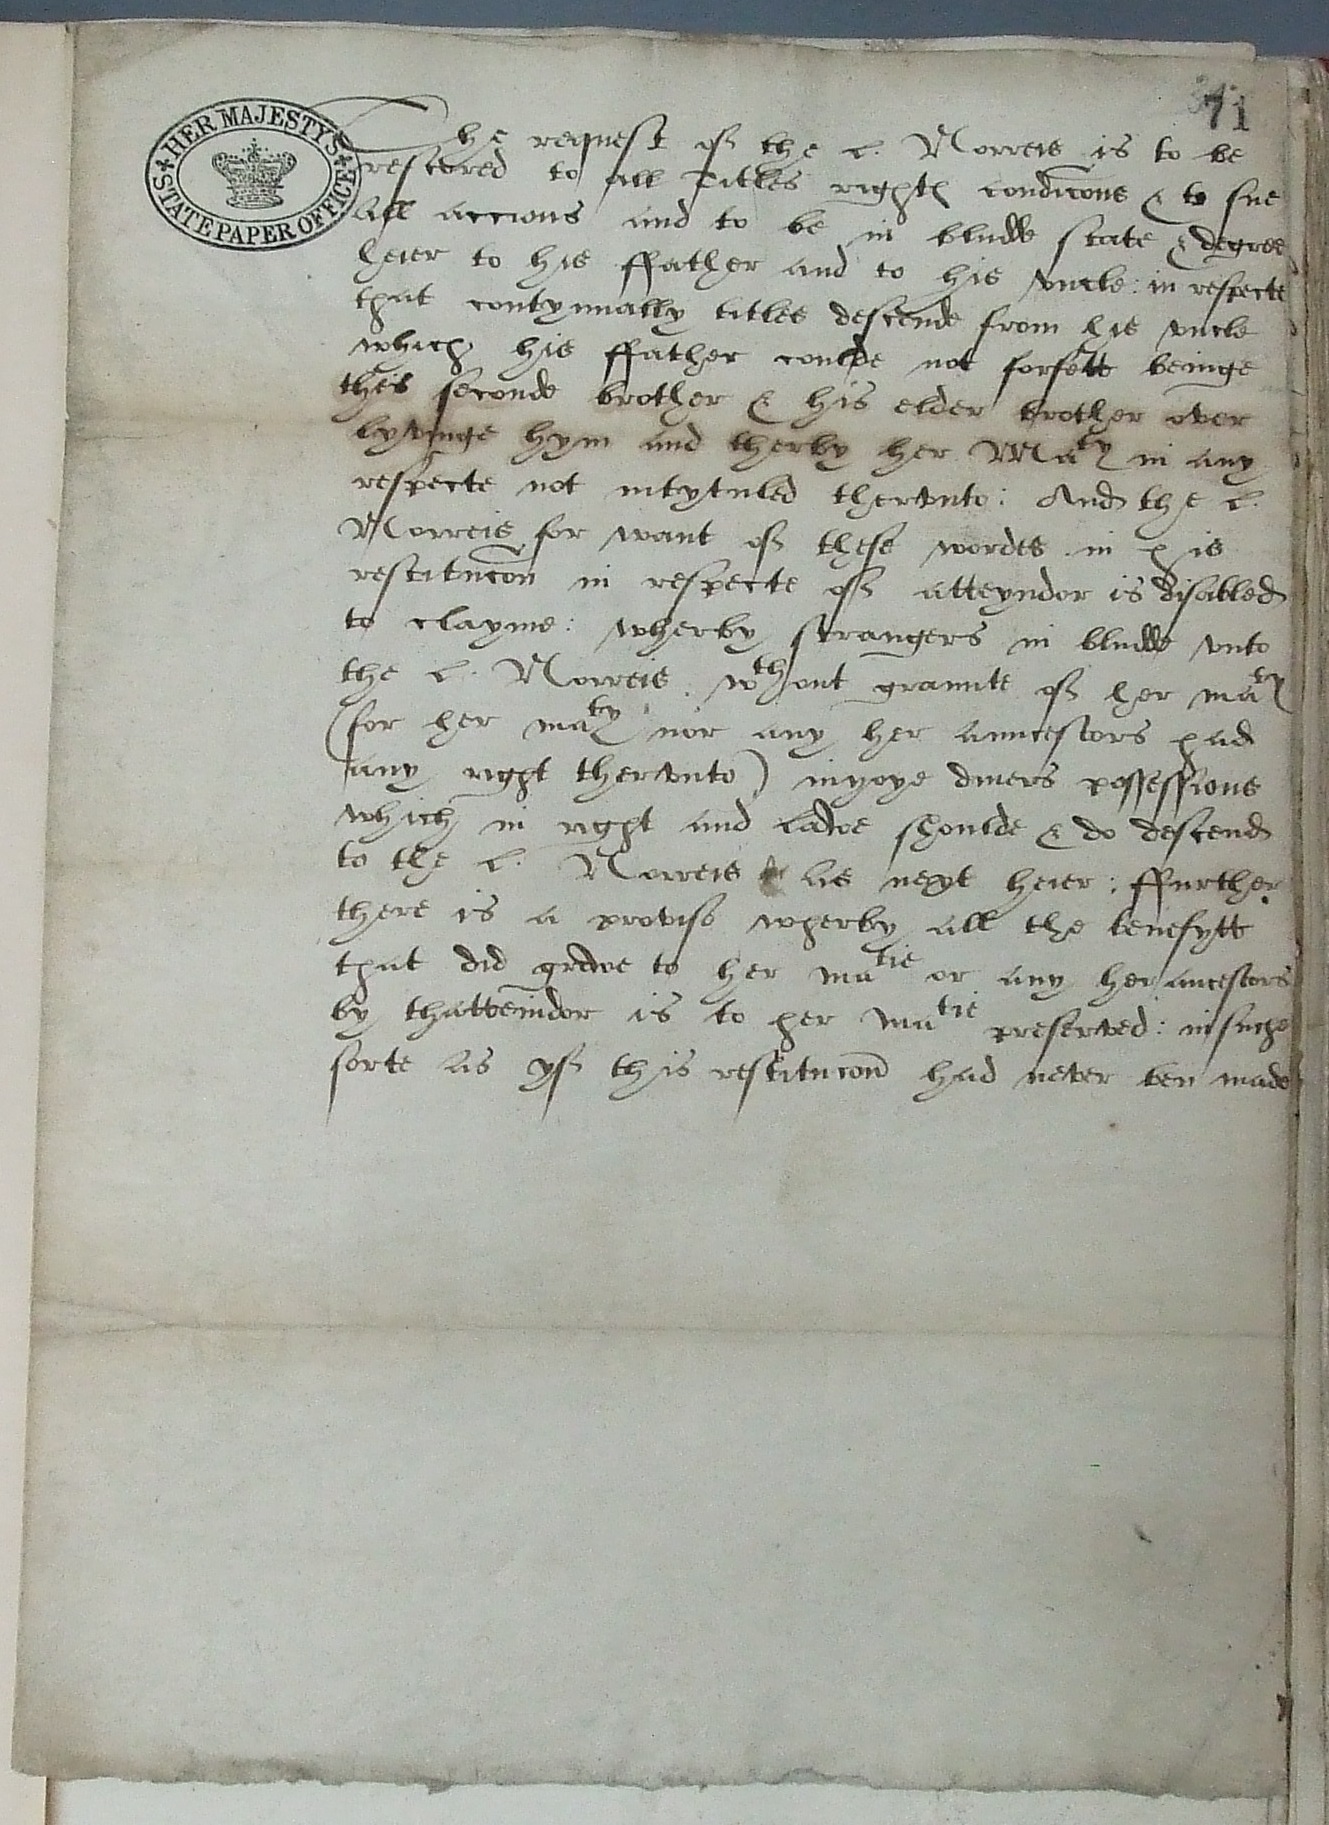 71
HER MAJESTYS
STATE PAPER OFFICE
The request of the L. Norreis is to be
restored to all Titles rightes condicons & to sue
all accions and to be in bludde state & degree
heier to his ffather and to his vncle: in respecte
that contynually titles descende from his vncle
which his ffather coulde not forfett beinge
the seconde brother & his elder brother over
lyvinge hym and therby her Maty in any
respecte not intytuled thervnto: And the L.
Norreis for want of these wordes in his
restitucon in respecte of atteyndor is disabled
to clayme: wherby strangers in bludde vnto
the L. Norreis. wthout graunte of her maty
(for her maty nor any her auncestors had
any right thervnto) inyoye diuers possessions
which in right and lawe shoulde & do descend
to the L. Norreis as next heier: ffurther
there is a proviso wherby all the benefytt
that did growe to her matie or any her ancestors
by thatteindor is to her matie preserved: in suche
sorte as yf this restitucon had never ben made